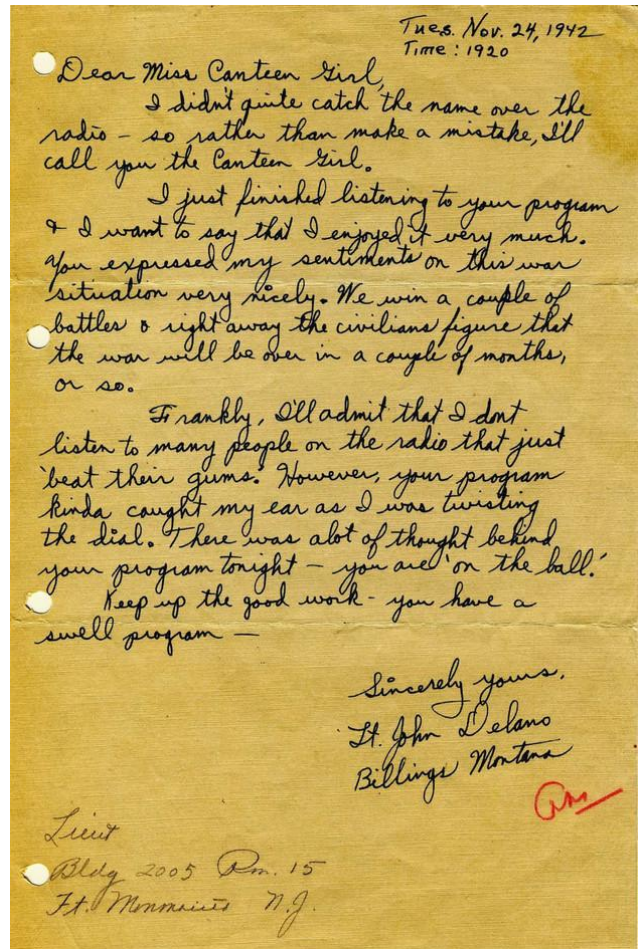 Tues. Nov. 24, 1942
Time: 1920
Dear Miss Canteen Girl,
I didn't quite catch the name over the
radio - so rather than make a mistake, I'll
call you the Canteen Girl.
I just finished listening to your program
& I want to say that I enjoyed it very much.
You expressed my sentiments on this war
situation very nicely. We win a couple of
battles & right away the civilians figure that
the war will be over in a couple of months,
or so.
Frankly, I'll admit that I dont
listen to many people on the radio that just
'beat their gums.' However, your program
kinda caught my ear as I was twisting
the dial. There was alot of thought behind
your program tonight - you are 'on the ball.'
Keep up the good work - you have a
swell program -
Sincerely yours,
Lt. John Delano
Billings Montana
Ans
Lieut
Bldg 2005 Rm. 15
Ft. N.J.